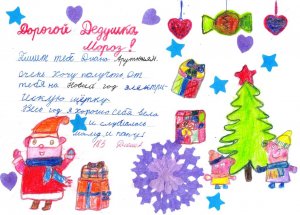 Дорогой Дедушка
Мороз!
Пишет тебе Диана Арутюнян.
Очень хочу получить от
тебя на Новый год электри-
ческую щётку.
Весь год я хорошо себя вела
и слушалась
маму и папу!
Диана